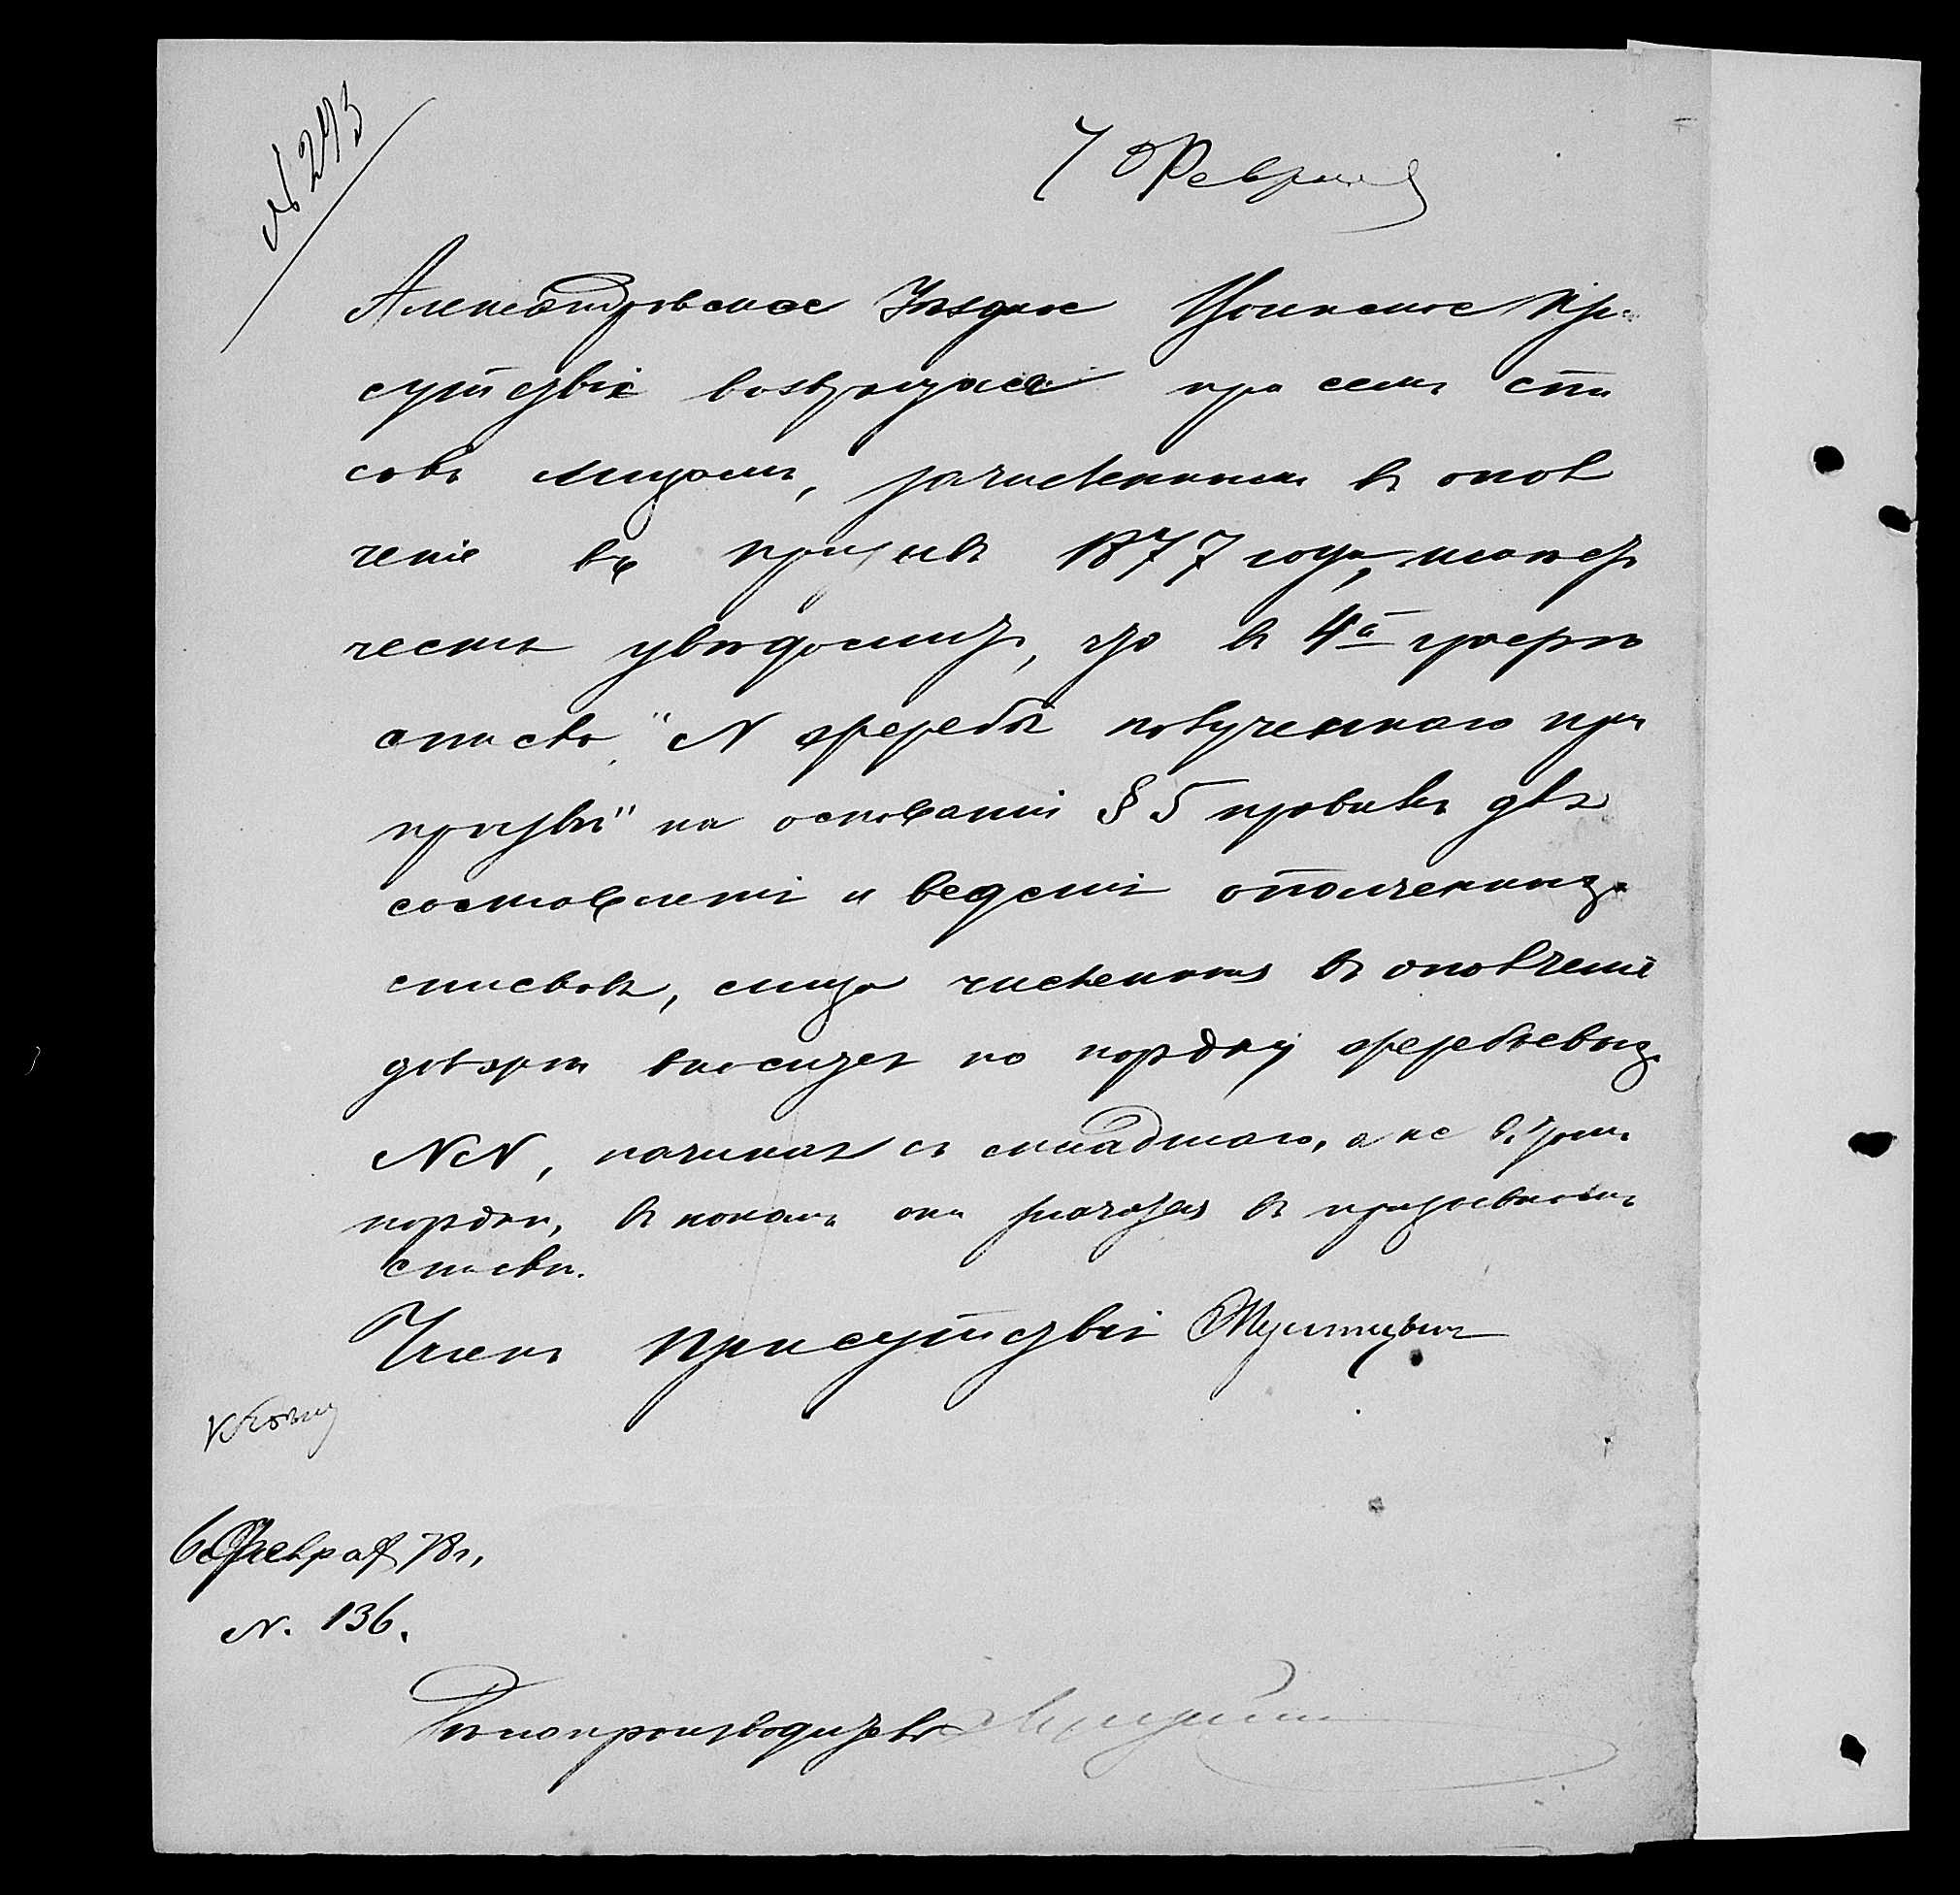 № 293
7 Февраля
Александровское Уездное Воинское При-
сутствіе возвращая при семъ спи
сокъ лицамъ, зачисленнымъ въ опол
ченіе въ призывъ 1877 года, имѣетъ
честь увѣдомить, что въ 4й графѣ
списка, "N жеребья полученнаго при
призывѣ" на основаніи § 5 правилъ для
составленія и веденія ополченныхъ
списковъ, лица численныя въ ополченіе
должны вносится по порядку жеребьевыхъ
NN, начиная съ младшаго, а не въ томъ
порядкѣ, въ какомъ они значатся въ призывномъ
спискѣ.
Членъ Присутствія
6 Февраля 78 г.
N. 136.
Дѣлопроизводитель